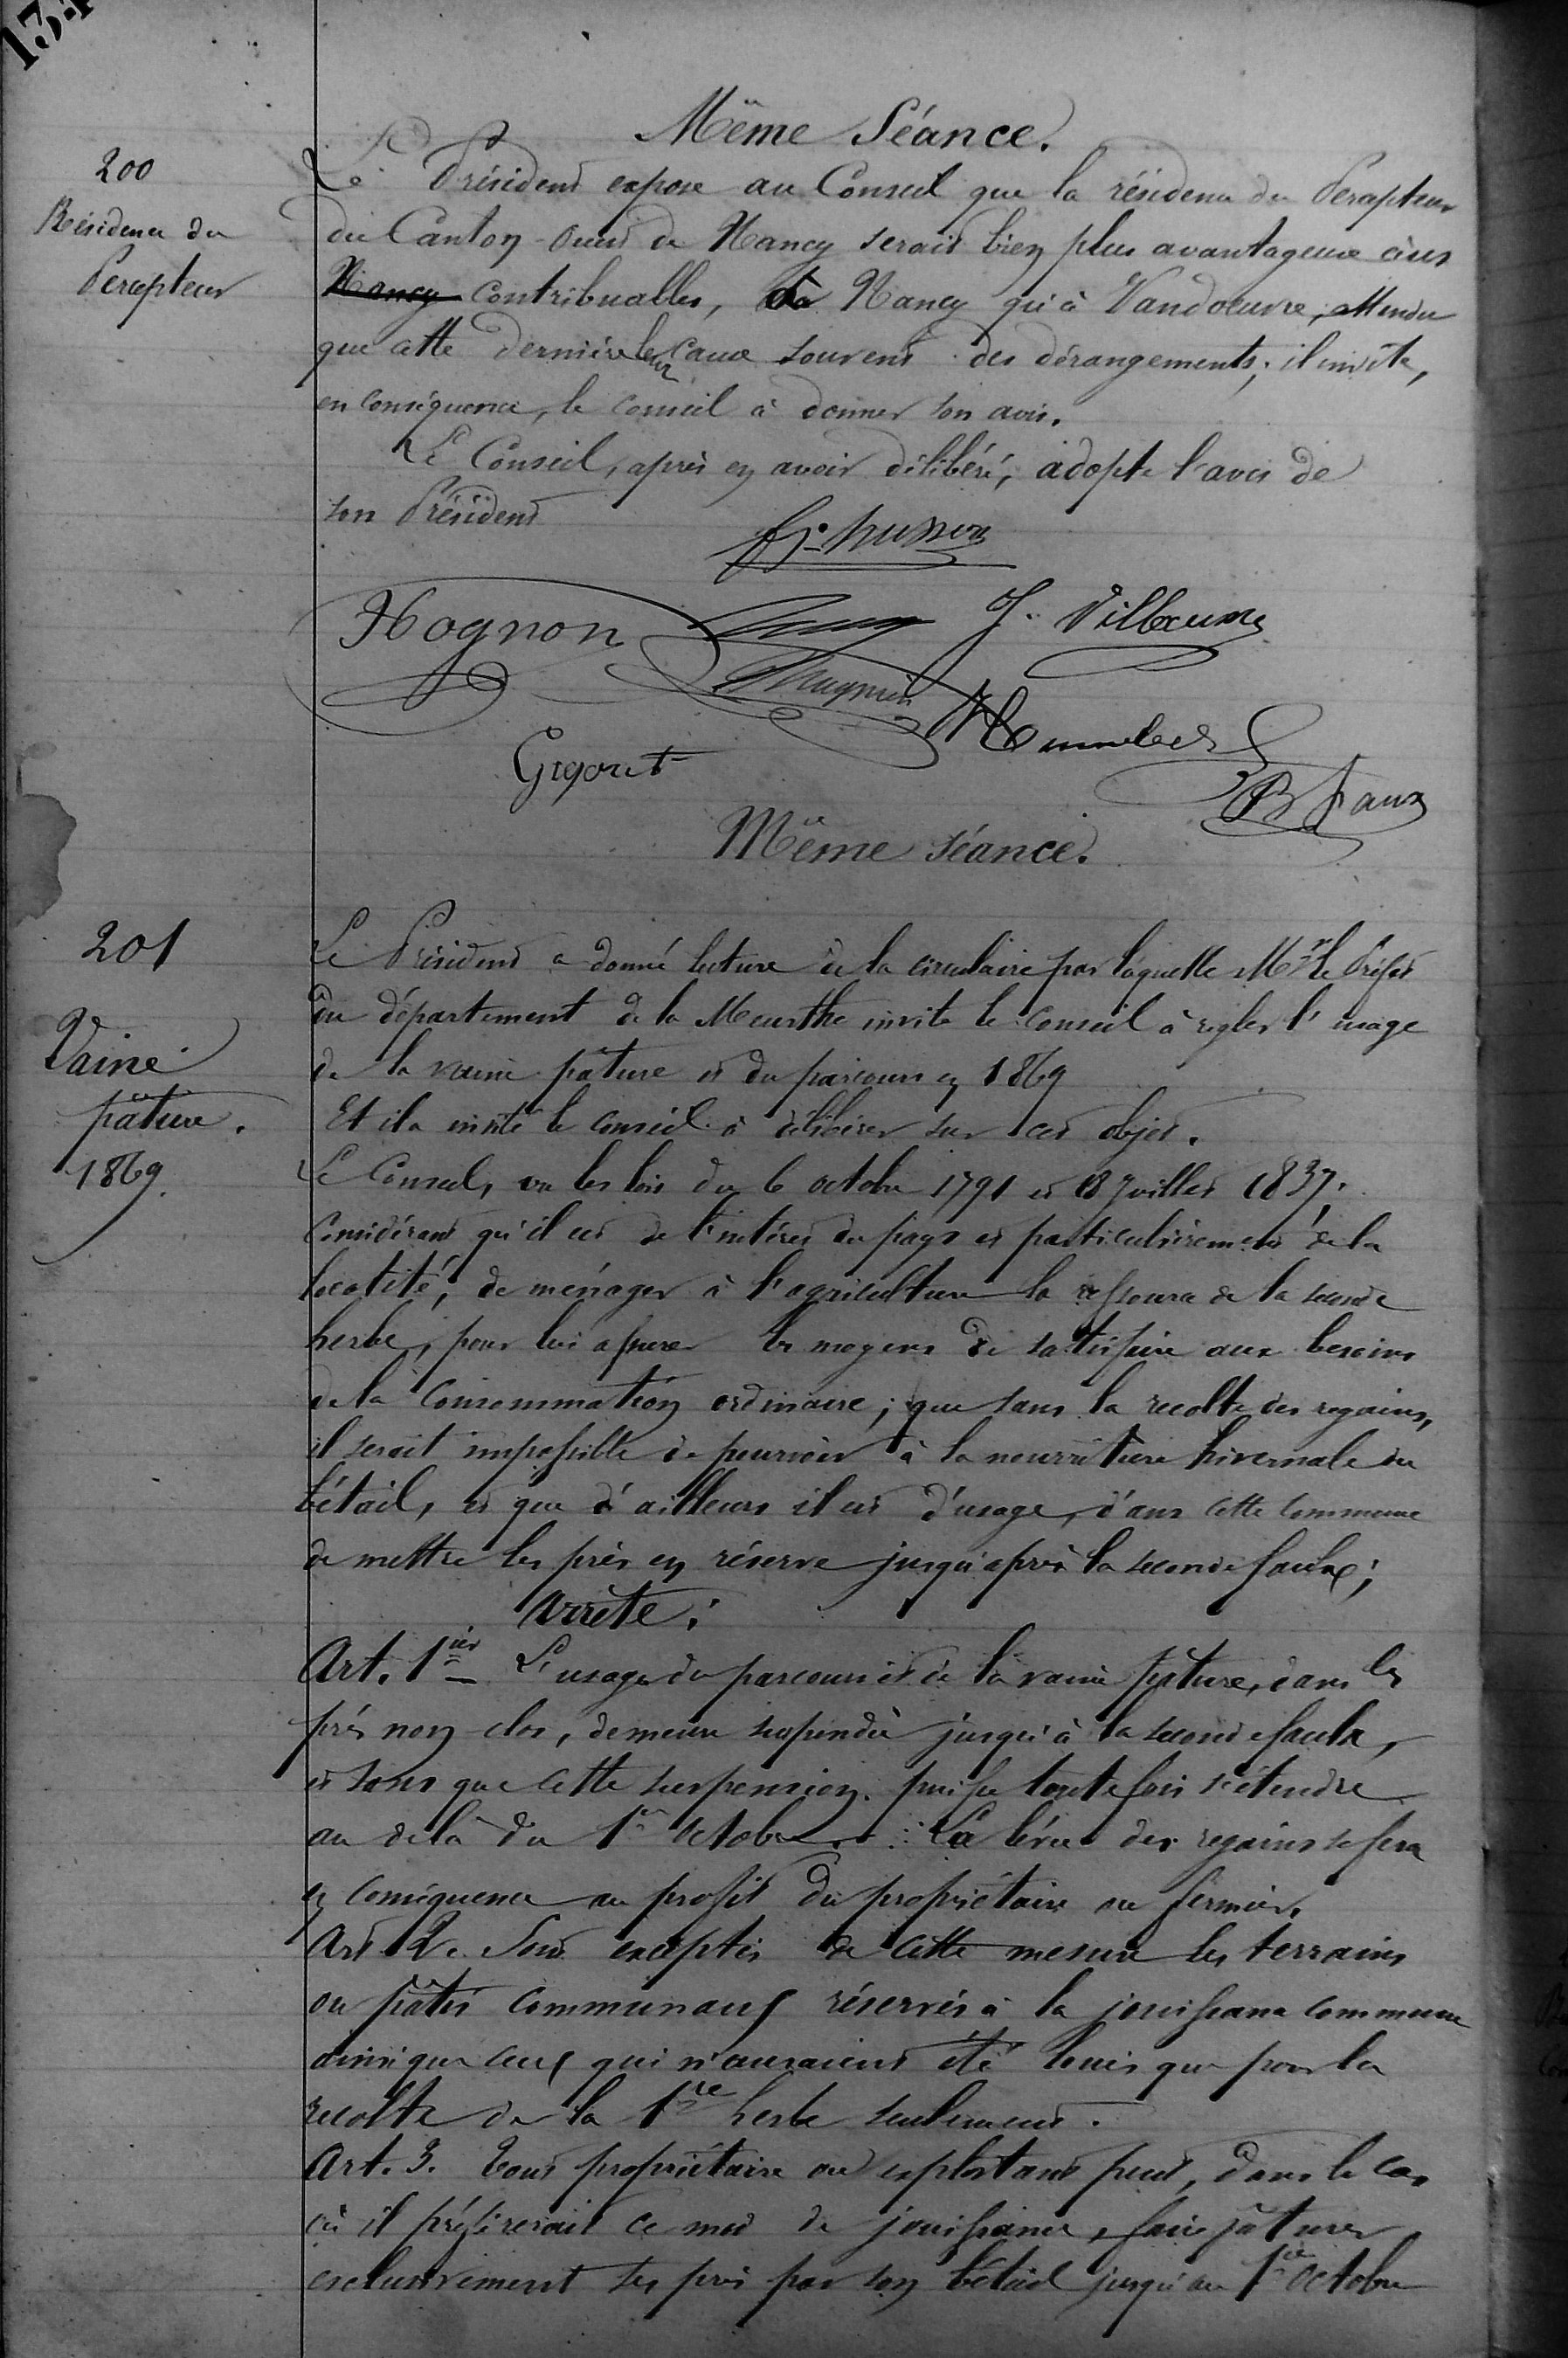 Même Séance.
200
Résidence du
Percepteur
Le Président expose au Conseil que la résidence du Percepteur
du Canton-Ouest de Nancy serait bien plus avantageuse aux
Nancy contribuables, à Nancy qu'à Vandoeuvre, attendu
que cette dernière leur cause souvent des dérangements; il invite,
en conséquence, le conseil à donner son avis.
Le Conseil, après en avoir délibéré, adopte l'avis de
son Président
husson
Hognon
J. Villaume
Gigout
B faux
Même séance.
201
Vaine
pâture.
1869.
Le Président a donné lecture de la circulaire par laquelle Mr le Préfet
du département de la Meurthe invite le Conseil à régler l'usage
de la vaine pâture et du parcours en 1869
Et il a invité le conseil à délibérer sur cet objet.
Le Conseil, vu les lois du 6 octobre 1791 et 18 Juillet 1837.
Considérant qu'il est de l'intérêt du pays et particulièrement de la
localité, de ménager à l'agriculture la ressource de la seconde
herbe, pour lui assurer les moyens de satisfaire aux besoins
de la Consommation ordinaire; que sans la recolte des regains,
il serait impossible de pourvoir à la nourriture hivernale du
bétail, et que d'ailleurs il est d'usage, dans cette commune
de mettre les près en réserve jusqu'après la seconde faulx;
Arrête:
Art. 1ier L'usage du parcours et de la vaine pâture, dans les
prés non-clos, demeure suspendu jusqu'à la seconde faulx,
et sans que cette suspension puisse toutefois s'étendre
au delà du 1er Octobre. La levée des regains se fera
en conséquence au profit du propriétaire ou fermier.
Art. 2. Sont exceptés de cette mesure les terrains
ou pâtis communaux réservés à la jouissance commune
ainsi que ceux qui n'auraient été loués que pour la
recolte de la 1re herbe seulement.
Art. 3. Tout propriétaire ou exploitant peut, dans le cas
où il préférerait ce mod de jouissance, faire pâturer
exclusivement ses prés par son bétail jusqu'au 1er Octobre